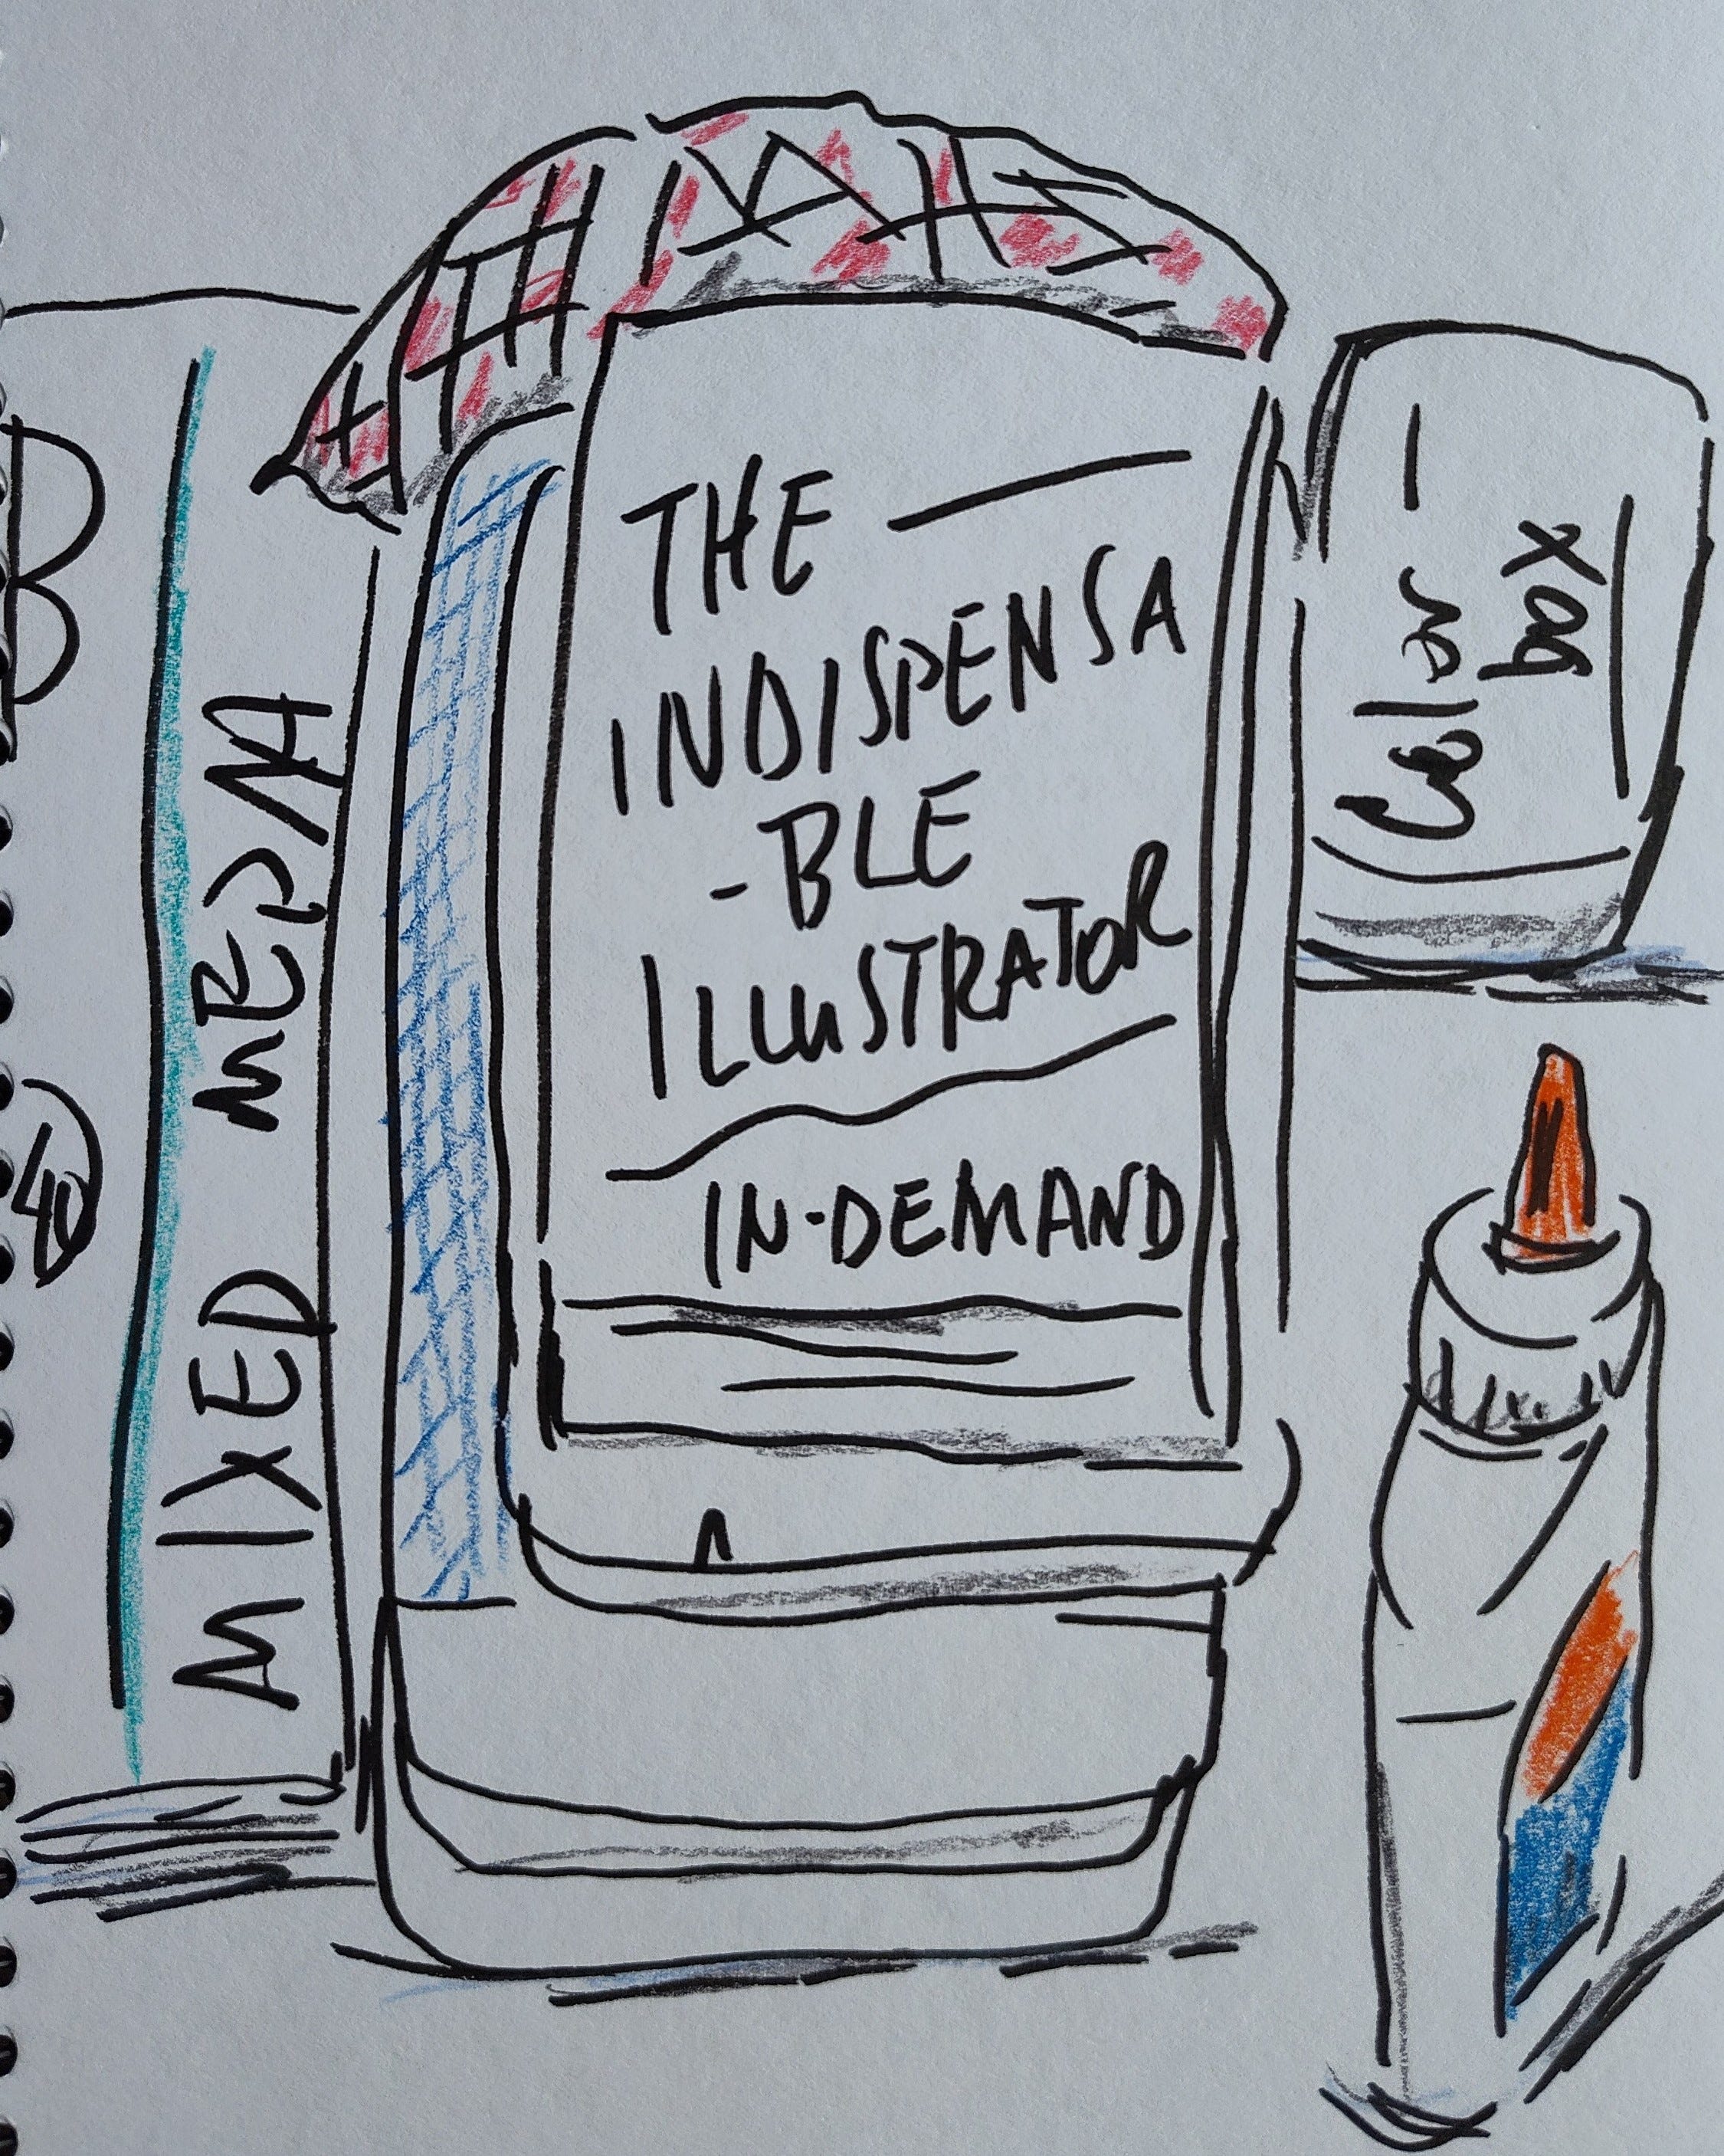 B
40
MIXED MEDIA
THE
INDISPENSA
-BLE
ILLUSTRATOR
IN-DEMAND
Color
box